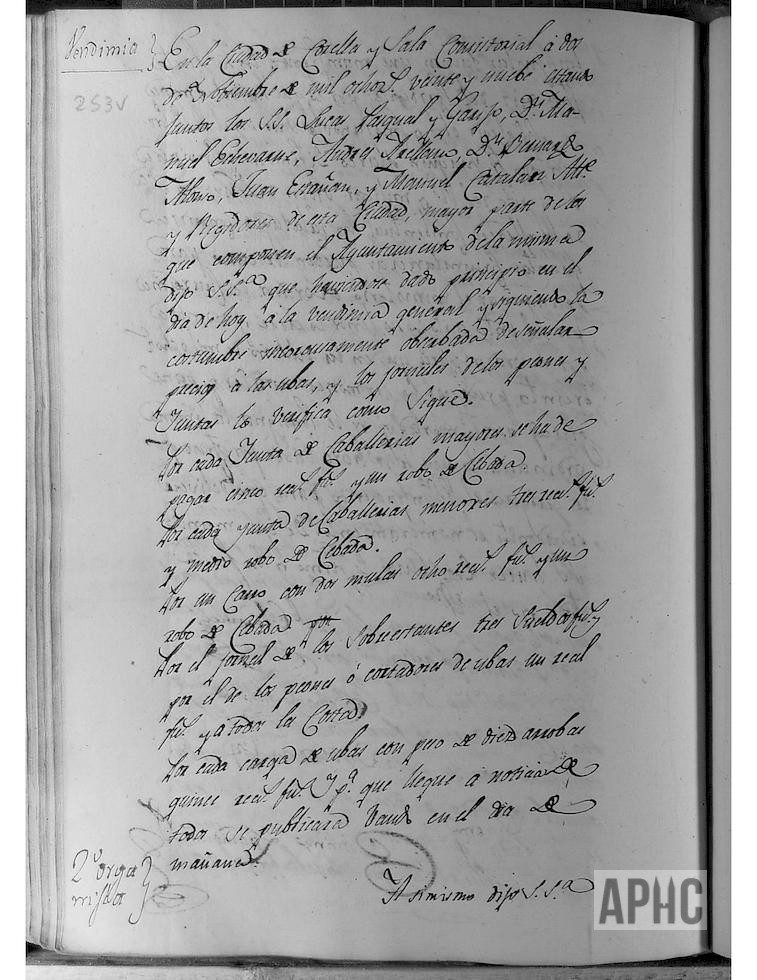 Vendimia
253v
En la Ciudad de Corella y Sala Consistorial á dos
de Nobiembre de mil ochos. veinte y nuebe estando
juntos los S.S. Lucas Pasqual y Garijo, Dn. Ma-
nuel Echevarne, Andres Arellano, Dn. Bernardo
Alonso, Juan Escañan, y Manuel Catalan Alte.
y Regidores de esta Ciudad, mayor parte de los
que componen el Ayuntamiento de la misma
dijo S.Sa. que haviendose dado principio en el
dia de hoy á la vendimia general y siguiendo la
costumbre incorousamente obserbada de señalar
precios á las ubas, y los jornales de los peones y
Juntas lo verifica como Sigue.
Por cada Junta de Caballerias mayores se ha de
pagar cinco reas. fs. y un robo de Cebada.
Por cada yunta de Caballerias menores tres reas. fs.
y medio robo de Cebada.
Por un Carro con dos mulas ocho reas. fs. y un
robo de Cebada
Por el jornal de los Sobrestantes tres Sueldos fs. y
por el de los peones ó cortadores de ubas un real
fs. y á todos la Costa
Por cada carga de ubas con peso de diez arrobas
quince reas. fs. Y pa. que llegue á noticia de
todos se publicará Vando en el dia de
mañana.
2º orga
nista
Asimismo dijo S.Sa.
APHC